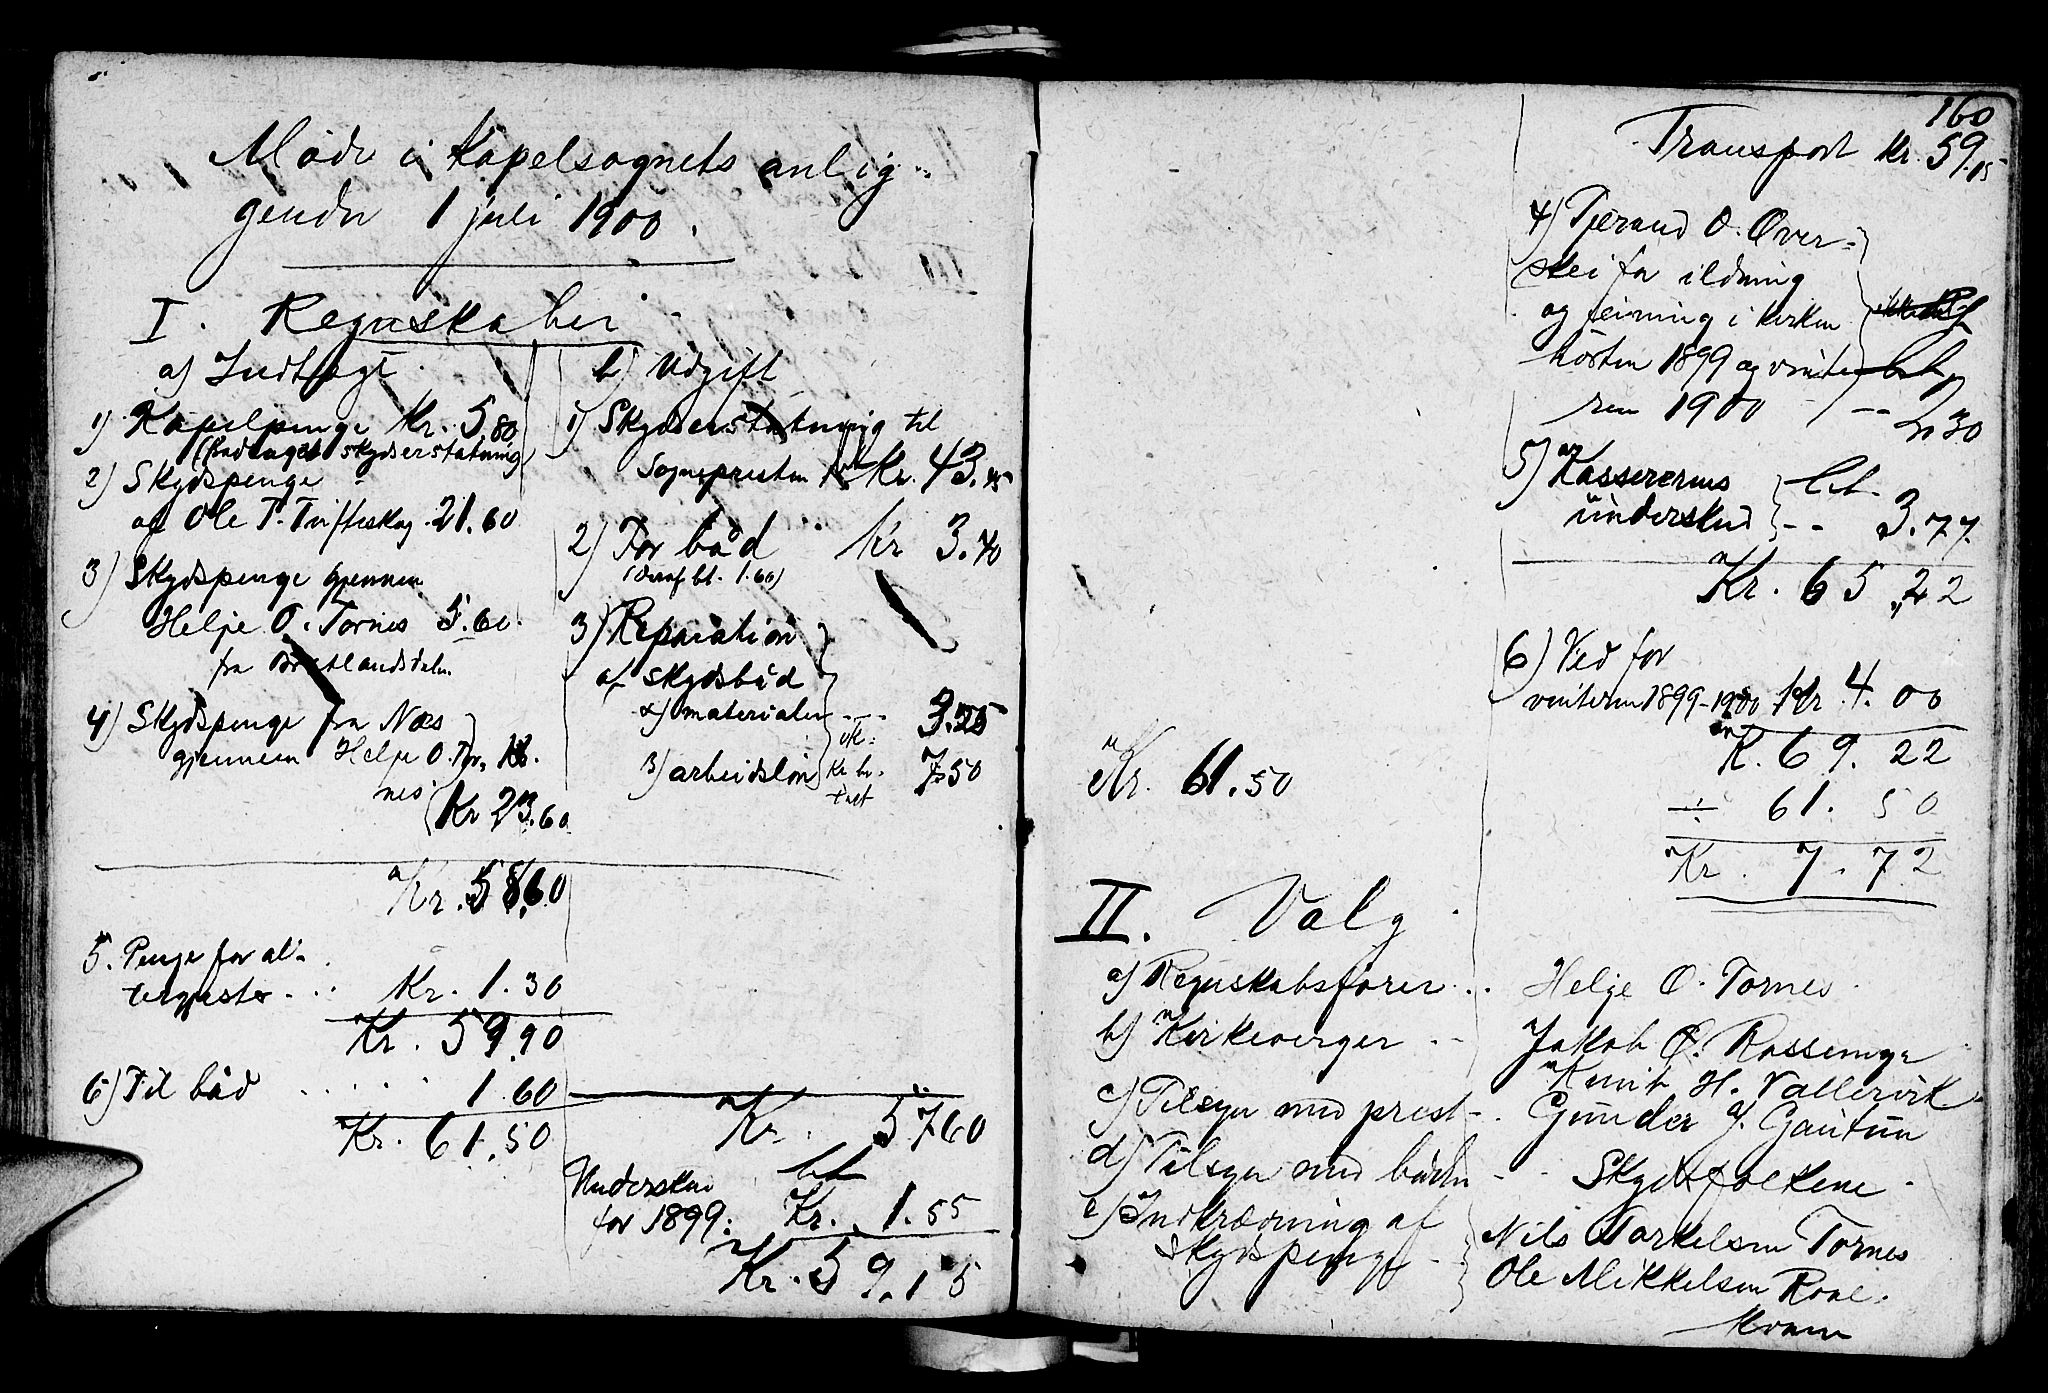 Møde i Kapelsognets anlig-
gender 1 juli 1900.
I. Regnskaber
a) Indtægt.
1) Kapelpenge Kr. 5.80
skydserstatning)
2) Skydspenge
af Ole T. Tvifteskog. 21.60
3) Skydspenge gjennem
Helje O. Tornes 5.60
fra Bratlandsdalen.
4) Skydspenge fra Næs
gjennem Helje O. Tor-
nes
Kr 23.60
Kr. 58.60
5. Penge for al-
tergjester . . . Kr. 1.30
Kr. 59.90
6) Til båd . . . . 1.60
Kr. 61.50
b) Udgift
1) Skydserstatning til
Sognepresten Kr. 43.45
2) For båd Kr 3.40
(deraf bt. 1.60)
3) Reparation
af skydsbåd
α) materialer -- 3.25
β) arbeidsløn 7.50
Kr. 57.60
Underskud bt
for 1899: Kr. 1.55
Kr. 59.15
160
Transport Kr. 59.15
4) Tjerand O. Øver-
skei for ildning
og feining i kirken
høsten 1899 og vinte-
ren 1900 - -- 2.30
5) Kassererens bt.
underskud -- 3.77.
Kr. 65.22
6) Ved for
vinteren 1899-1900 Kr. 4.00
K. 69.22
÷ 61.50
Kr. 7.72
Kr. 61.50
II. Valg
a) Regnskabsfører . . Helje O. Tornes.
b) Kirkeverger . - Jakob O. Rossenge
Knut H. Vallervik
c) Tilsyn med prest - . Gunder G. Gautun
d) Tilsyn med båden - - Skydsfolkene.
e) Indkrævning af Nils Torkelsen Tornes
skydspenge - Ole Mikkelsen Roal-
kvam